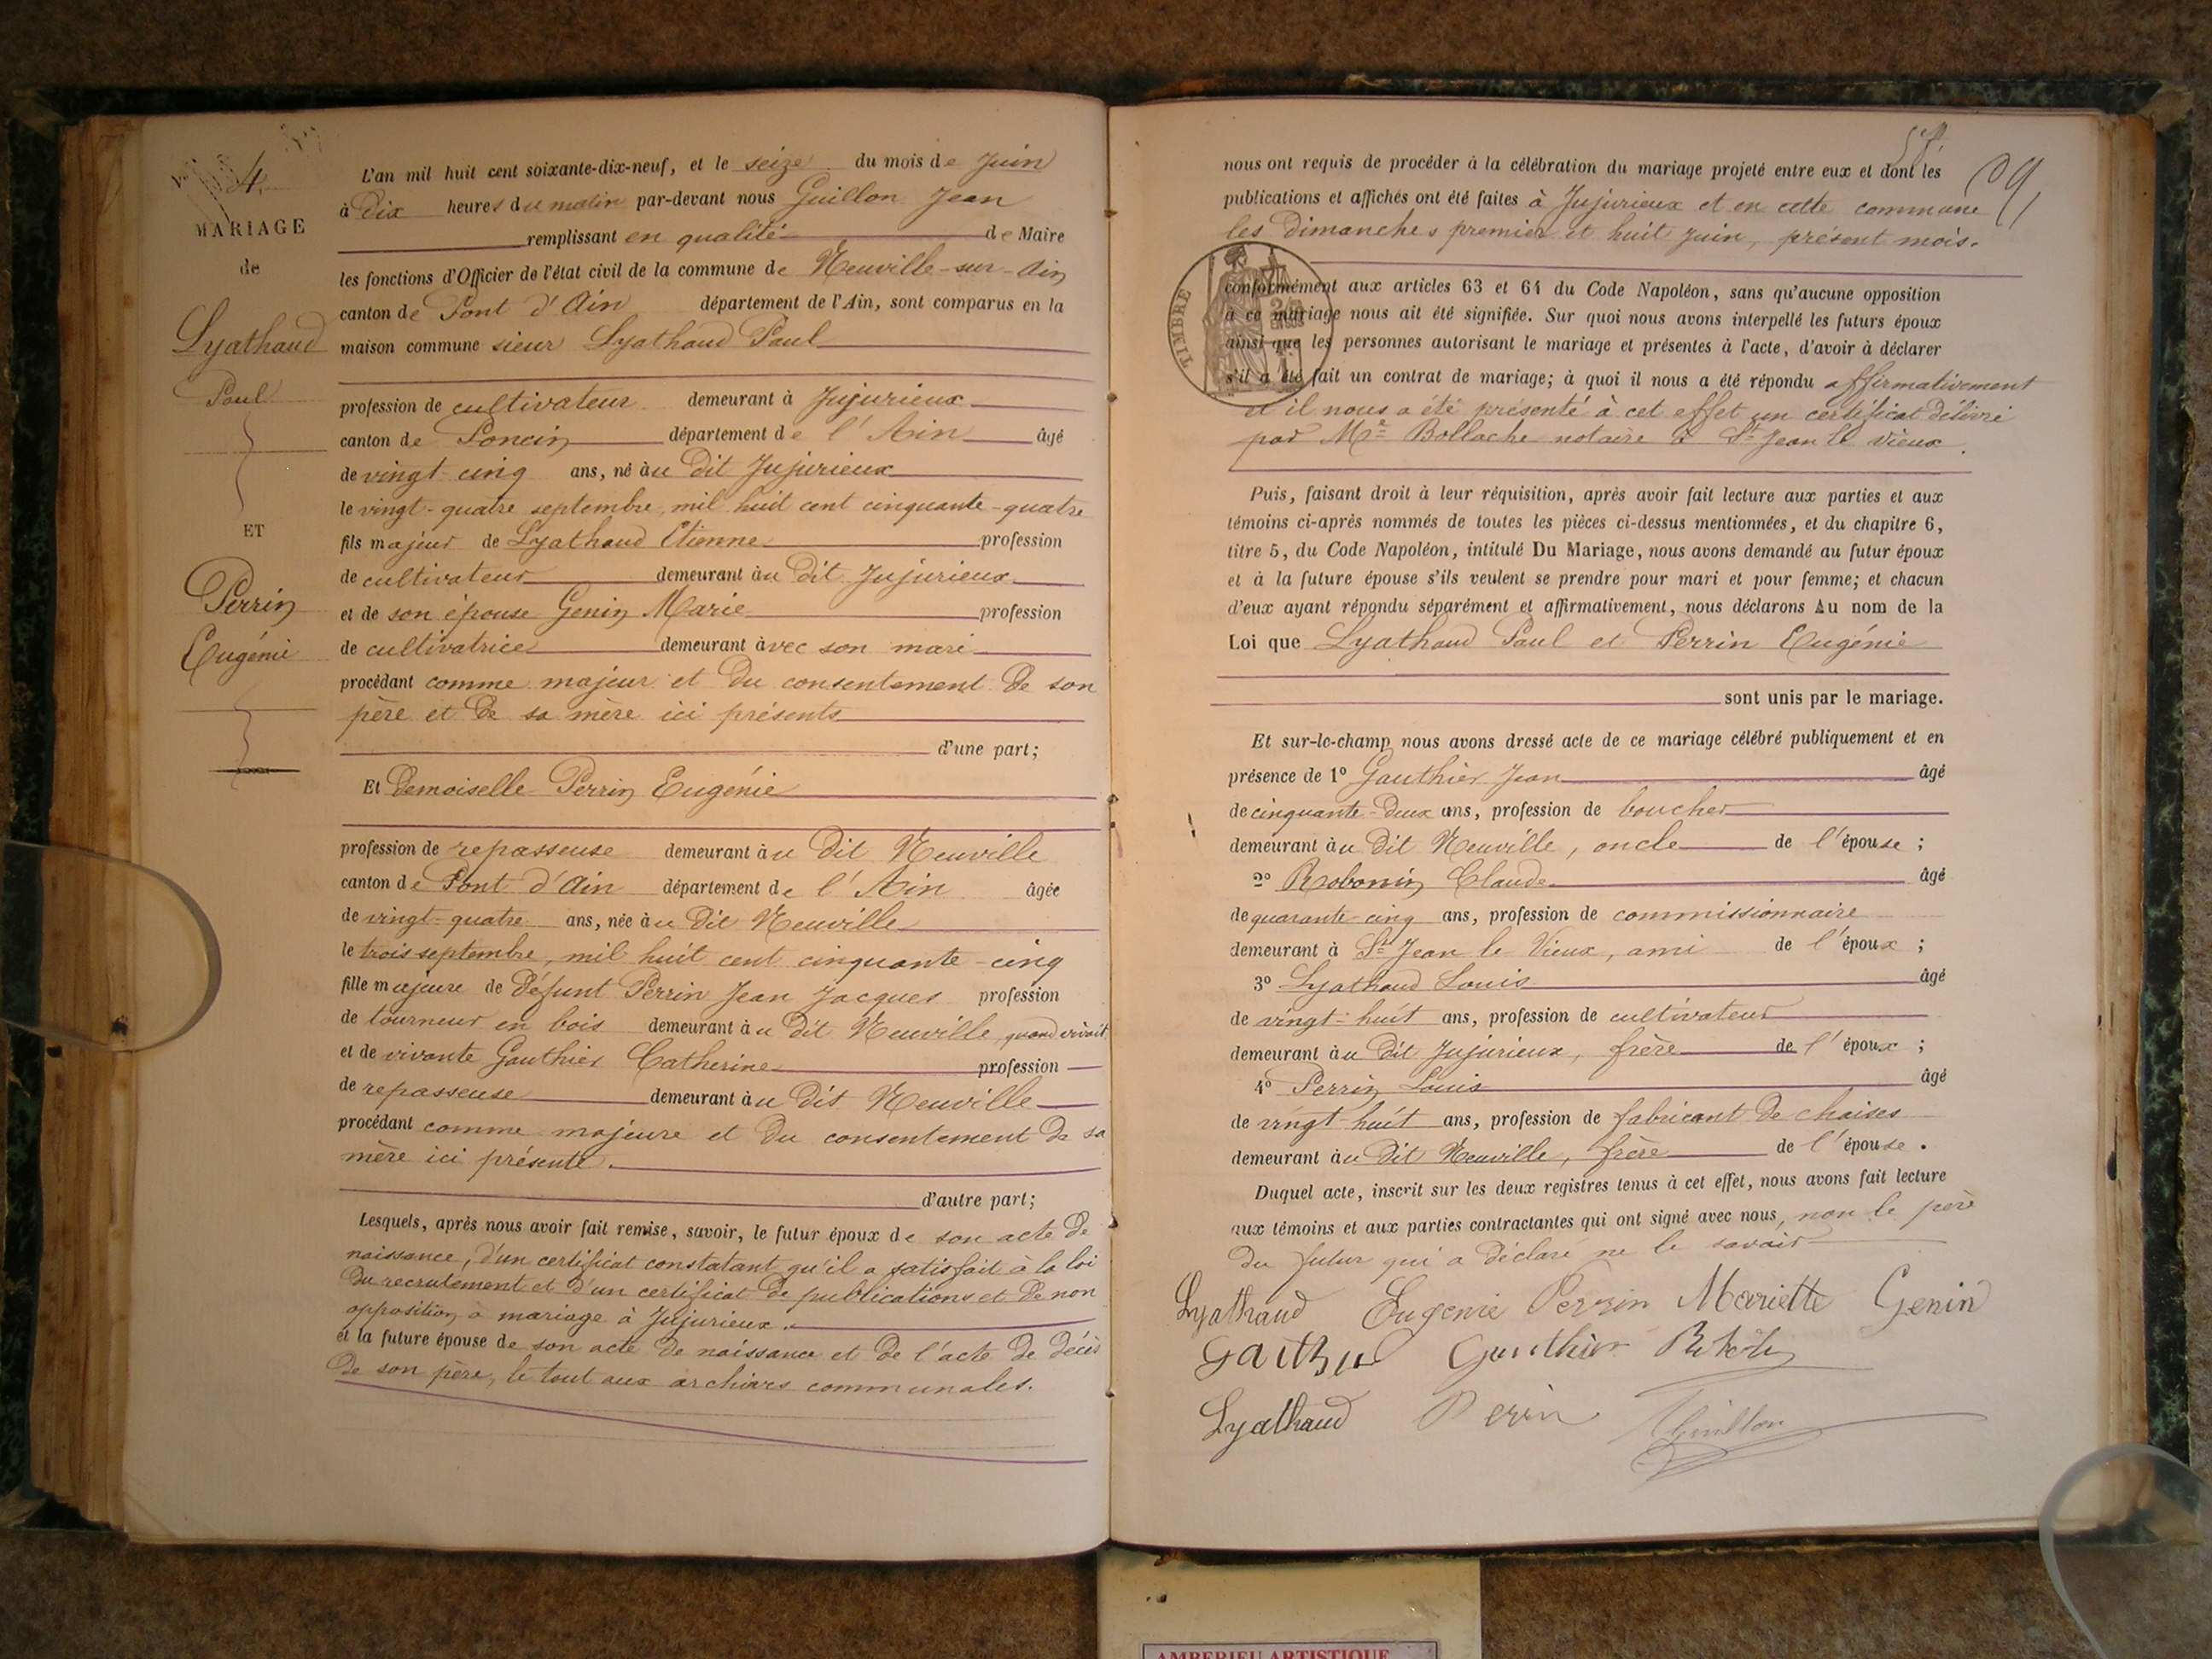 N° 4.
MARIAGE
de
Lyathaud
Paul
ET
Perrin
Eugénie
L'an mil huit cent soixante-dix-neuf, et le seize du mois de Juin
à Dix heures du matin par-devant nous Guillon Jean
remplissant en qualité de Maire
les fonctions d'Officier de l'état civil de la commune de Neuville-sur-Ain
canton de Pont d'Ain département de l'Ain, sont comparus en la
maison commune sieur Lyathaud Paul
profession de cultivateur demeurant à Jujurieux
canton de Poncin département de l'Ain âgé
de vingt cinq ans, né au Dit Jujurieux
le vingt-quatre septembre, mil huit cent cinquante-quatre
fils majeur de Lyathaud Etienne profession
de cultivateur demeurant au Dit Jujurieux
et de son épouse Genin Marie profession
de cultivatrice demeurant avec son mari
procédant comme majeur et Du consentement De son
père et De sa mère ici présents
d'une part;
Et Demoiselle Perrin Eugénie
profession de repasseuse demeurant au Dit Neuville
canton de Pont d'Ain département de l'Ain âgée
de vingt-quatre ans, née au Dit Neuville
le trois septembre, mil huit cent cinquante-cinq
fille majeure de Défunt Perrin Jean Jacques profession
de tourneur en bois demeurant au Dit Neuville quand vivait
et de vivante Gauthier Catherine profession
de repasseuse demeurant au Dit Neuville
procédant comme majeure et Du consentement De sa
mère ici présente.
d'autre part;
Lesquels, après nous avoir fait remise, savoir, le futur époux de son acte De
naissance, d'un certificat constatant qu'il a satisfait à la loi
Du recrutement et d'un certificat De publications et De non
opposition à mariage à Jujurieux.
et la future épouse de son acte De naissance et De l'acte De Décès
De son père, le tout aux archives communales.
nous ont requis de procéder à la célébration du mariage projeté entre eux et dont les
publications et affiches ont été faites à Jujurieux et en cette commune
les Dimanches premier et huit Juin, présent mois.
TIMBRE
conformément aux articles 63 et 64 du Code Napoléon, sans qu'aucune opposition
à ce mariage nous ait été signifiée. Sur quoi nous avons interpellé les futurs époux
ainsi que les personnes autorisant le mariage et présentes à l'acte, d'avoir à déclarer
s'il a été fait un contrat de mariage; à quoi il nous a été répondu affirmativement
et il nous a été présenté à cet effet un certificat Délivré
par Me Bollache notaire à St Jean le Vieux.
Puis, faisant droit à leur réquisition, après avoir fait lecture aux parties et aux
témoins ci-après nommés de toutes les pièces ci-dessus mentionnées, et du chapitre 6,
titre 5, du Code Napoléon, intitulé Du Mariage, nous avons demandé au futur époux
et à la future épouse s'ils veulent se prendre pour mari et pour femme; et chacun
d'eux ayant répondu séparément et affirmativement, nous déclarons Au nom de la
Loi que Lyathaud Paul et Perrin Eugénie
sont unis par le mariage.
Et sur-le-champ nous avons dressé acte de ce mariage célébré publiquement et en
présence de 1° Gauthier Jean âgé
de cinquante-Deux ans, profession de boucher
demeurant au Dit Neuville, oncle de l'épouse;
2° Robonin Claude âgé
de quarante-cinq ans, profession de commissionnaire
demeurant à St Jean le Vieux, ami de l'époux;
3° Lyathaud Louis âgé
de vingt-huit ans, profession de cultivateur
demeurant au Dit Jujurieux, frère de l'époux;
4° Perrin Louis âgé
de vingt-huit ans, profession de fabricant De chaises
demeurant au Dit Neuville, frère de l'épouse.
Duquel acte, inscrit sur les deux registres tenus à cet effet, nous avons fait lecture
aux témoins et aux parties contractantes qui ont signé avec nous, non le père
Du futur qui a Déclaré ne le savoir
Lyathaud Eugenie Perrin Mariette Genin
Gauthier
Lyathaud Perin Guillon
AMBERIEU ARTISTIQUE